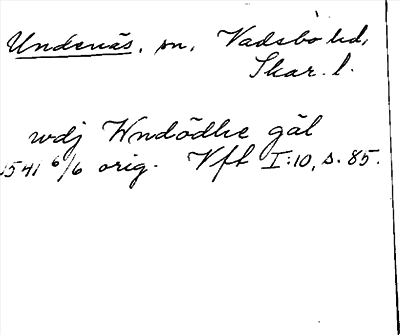 Undenäs, sn, Vadsbo hd,
Skar. l.
wdj Wndödhe gäl
1541 6/6 orig. Vft I:10, s. 85.